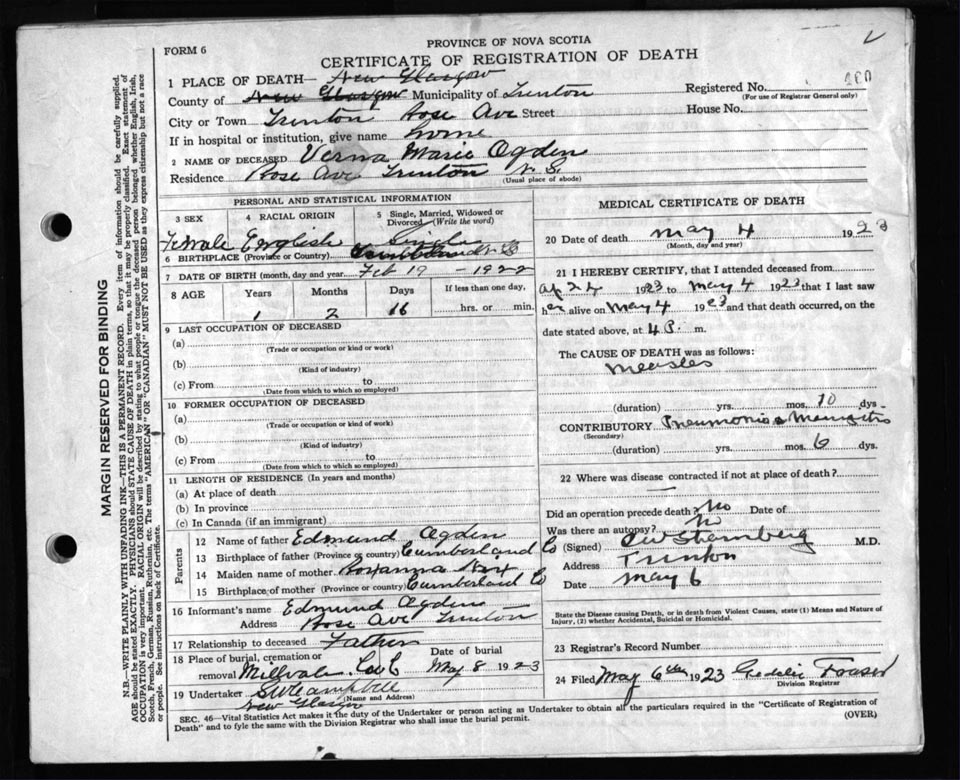 PROVINCE OF NOVA SCOTIA
FORM 6
CERTIFICATE OF REGISTRATION OF DEATH
1 PLACE OF DEATH— New Glasgow
Registered No.
(For use of Registrar General only)
County of New Glasgow Municipality of Trenton
City or Town Trenton Rose Ave Street House No.
If in hospital or institution, give name Home
2 NAME OF DECEASED Verna Marie Ogden
Residence Rose Ave Trenton N.S.
(Usual place of abode)
PERSONAL AND STATISTICAL INFORMATION
3 SEX
4 RACIAL ORIGIN
5 Single, Married, Widowed or Divorced (Write the word)
Female English Single
6 BIRTHPLACE (Province or Country) N.S
7 DATE OF BIRTH (month, day and year) Feb 19 - 1922
8 AGE Years Months Days If less than one day,
1 2 16 hrs. or min.
9 LAST OCCUPATION OF DECEASED
(a)
(Trade or occupation or kind or work)
(b)
(Kind of industry)
(c) From to
(Date from which to which so employed)
10 FORMER OCCUPATION OF DECEASED
(a)
(Trade or occupation or kind of work)
(b)
(Kind of industry)
(c) From to
(Date from which to which so employed)
11 LENGTH OF RESIDENCE (In years and months)
(a) At place of death
(b) In province
(c) In Canada (if an immigrant)
Parents
12 Name of father Edmund Ogden
13 Birthplace of father (Province or country) Cumberland Co
14 Maiden name of mother Roxanna
15 Birthplace of mother (Province or country) Cumberland Co
16 Informant's name Edmund Ogden
Address Rose Ave Trenton
17 Relationship to deceased Father
18 Place of burial, cremation or removal Millvale Date of burial May 8 1923
19 Undertaker S W Campbell
(Name and Address)
New Glasgow
MEDICAL CERTIFICATE OF DEATH
20 Date of death May 4 1923
(Month, day and year)
21 I HEREBY CERTIFY, that I attended deceased from
Ap 24 1923 to May 4 1923 that I last saw
her alive on May 4 1923 and that death occurred, on the
date stated above, at 4 P. m.
The CAUSE OF DEATH was as follows:
Measles
(duration) yrs. mos. 10 dys.
CONTRIBUTORY Pneumonia
(Secondary)
(duration) yrs. mos. 6 dys.
22 Where was disease contracted if not at place of death?
—
Did an operation precede death? No Date of
Was there an autopsy? No
(Signed) M.D.
Address Trenton
Date May 6
State the Disease causing Death, or in death from Violent Causes, state (1) Means and Nature of
Injury, (2) whether Accidental, Suicidal or Homicidal.
23 Registrar's Record Number
24 Filed May 6th 1923 Fraser
Division Registrar
SEC. 46—Vital Statistics Act makes it the duty of the Undertaker or person acting as Undertaker to obtain all the particulars required in the "Certificate of Registration of
Death" and to fyle the same with the Division Registrar who shall issue the burial permit.
(OVER)
MARGIN RESERVED FOR BINDING
N.B.—WRITE PLAINLY WITH UNFADING INK—THIS IS A PERMANENT RECORD. Every item of information should be carefully supplied.
AGE should be stated EXACTLY. PHYSICIANS should STATE CAUSE OF DEATH in plain terms, so that it may be properly classified. Exact statement of
OCCUPATION is very important. RACIAL ORIGIN will be described by stating to what people or tongue the deceased person belonged whether English, Irish,
Scotch, French, German, Russian, Ruthenian, etc. The terms "AMERICAN" OR "CANADIAN" MUST NOT BE USED as they express citizenship but not a race
or people. See instructions on back of Certificate.